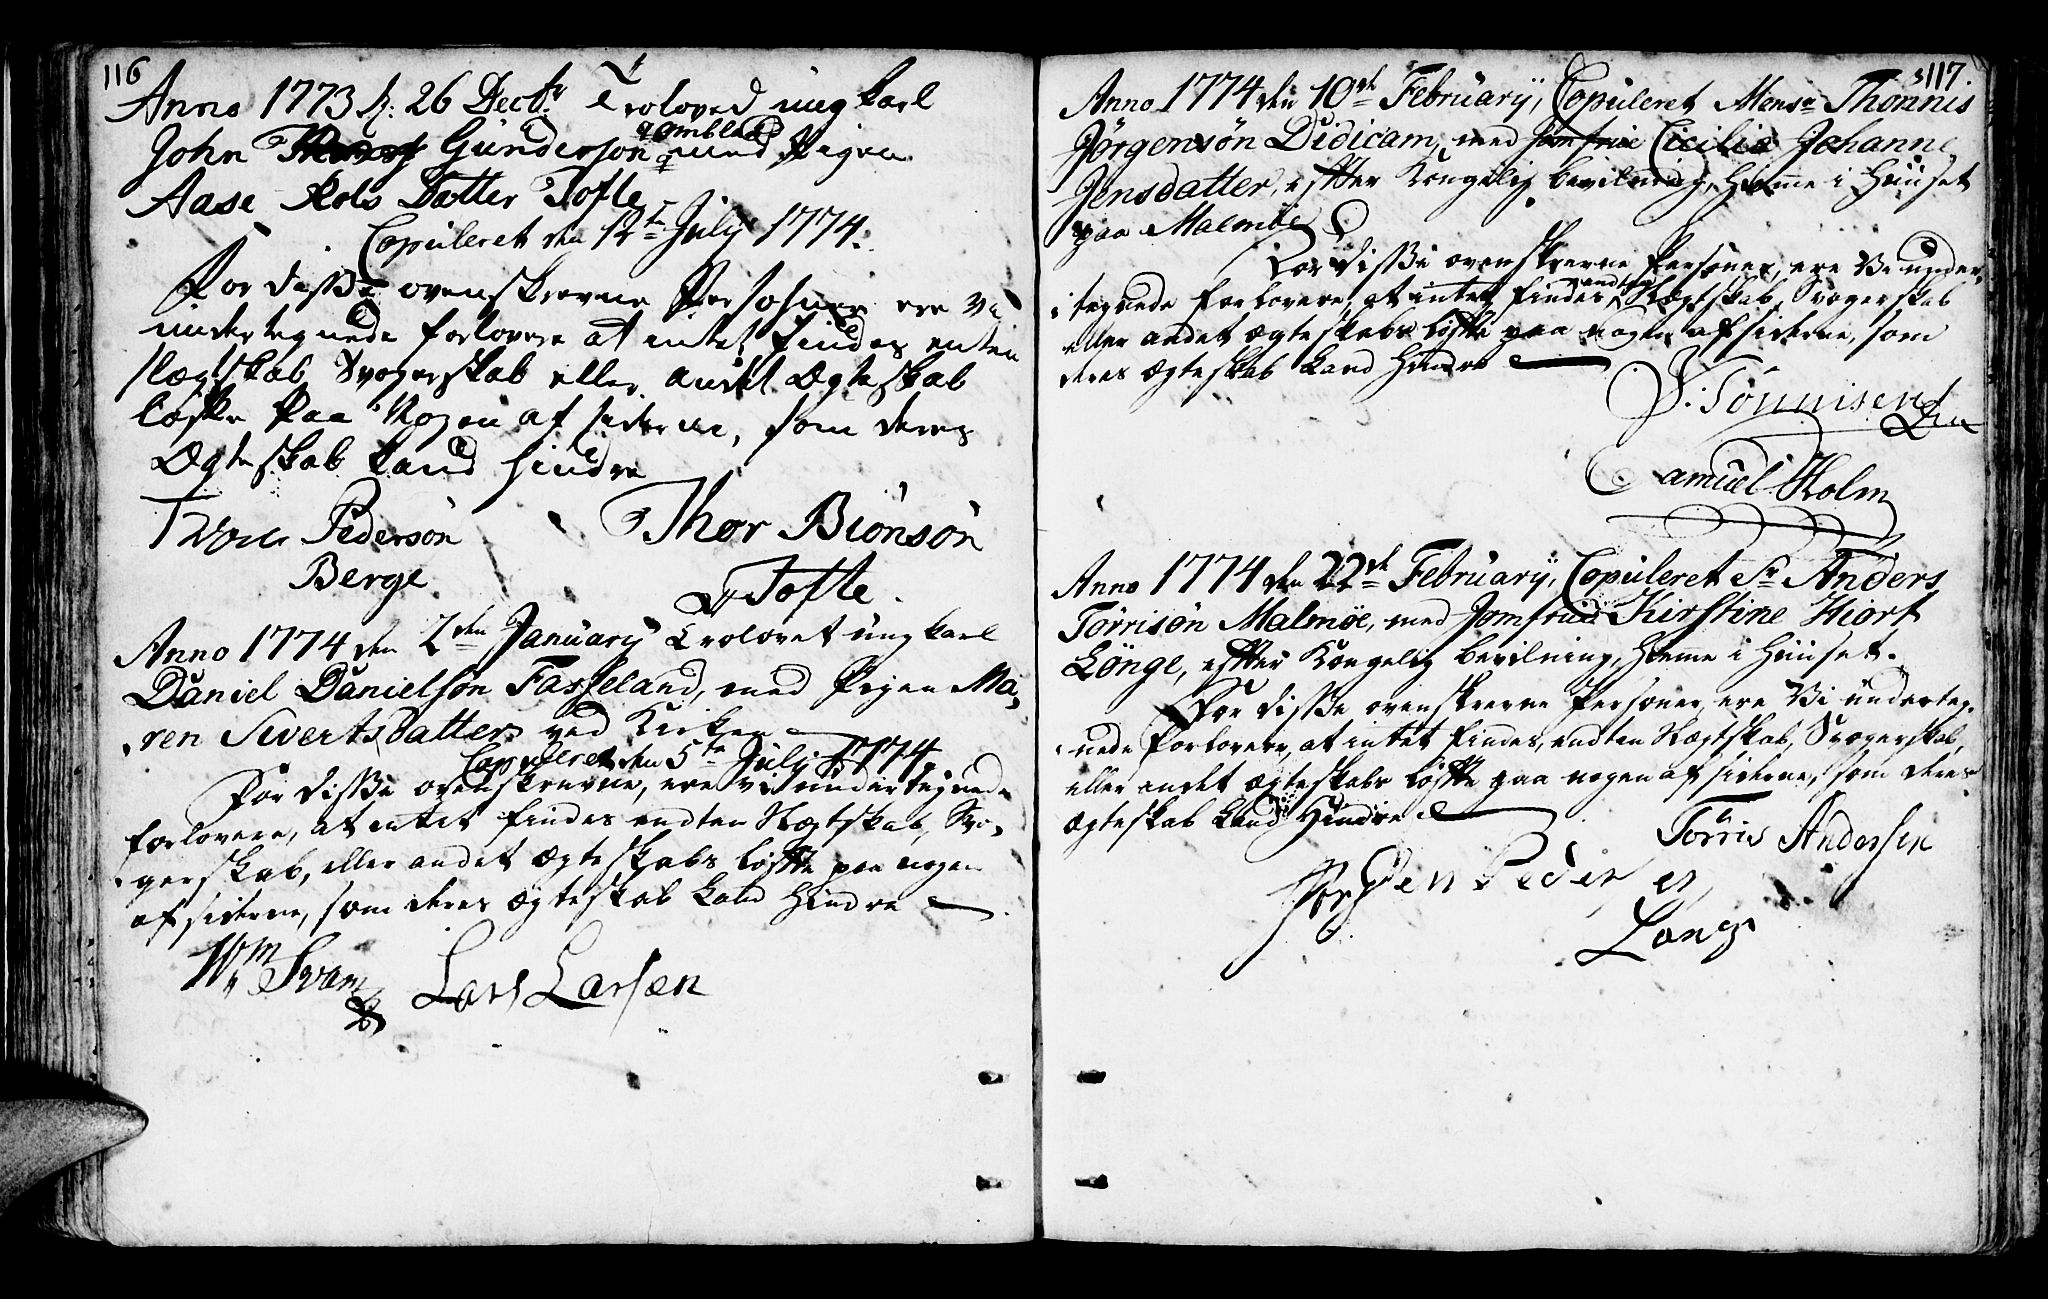 116
Anno 1773 d: 26 Decbr Troloved ung karl
John Gunderson Omblad med Pigen
Aase Rols Datter Tofte
Copuleret den 12te July 1774.
For disse ovenskrevne Persohner ere vi
undertegnede forlovere at intet findes enten
slægtskab Svogerskab eller andet Ægteskab
løfte Paa Nogen af siderne, som deres
Ægteskab kand hindre
Pedersön Thor Biönsön
Berge Tofte
Anno 1774 den 2den January Trolovet ung karl
Daniel Danielson Fasseland, med Pigen Ma-
ren Sivertsdatter ved Kirken
Copuleret den 5te July 1774.
For disse ovenskrevne, ere vi undertegnede
forlovere, at intet findes endten Slægtskab, Svo-
gerskab, eller andet Ægteskabs løfte paa nogen
af siderne, som deres Ægteskab kand Hindre
Wm Svan Lars Larsen
117.
Anno 1774 den 10de February, Copuleret Monsr Thonnis
Jörgensön Didicam, med Jomfrue Cicilia Johanne
Jensdatter, efter Kongelig bevilning, Hieme i Huuset
paa Malmöe
For disse ovenskrevne Personer, ere Vi under-
tegnede forlovere, at intet findes endten Slægtskab, Svogerskab
eller andet Ægteskabs løfte paa nogen af siderne, som
deres Ægteskab kand Hindre
J: Tönnisen
Samuel Holm
Anno 1774 den 22de February, Copuleret Sr Anders
Törrisön Malmöe, med Jomfrue Kirstine Hiort
Lönge, efter Kongelig bevilning, Hieme i Huuset.
For disse ovenskrevne Personer, ere Vi underteg-
nede forlovere, at intet findes, endten Slægtskab, Svogerskab,
eller andet Ægteskabs løfte paa nogen af siderne, som deres
Ægteskab kand Hindre
Törris Andersen
Pedersen
Long